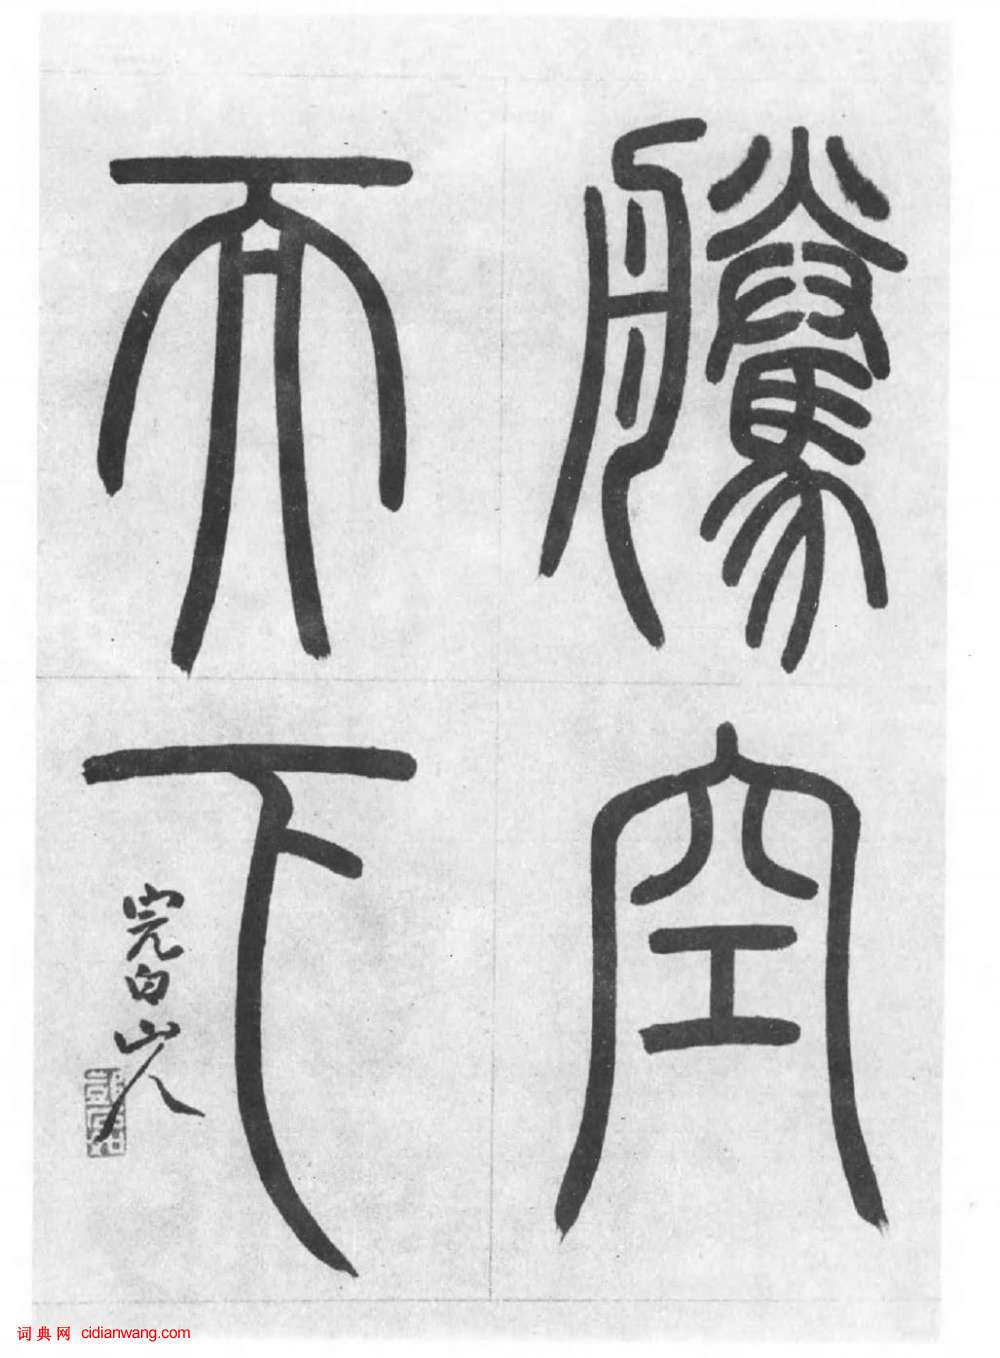 騰空
而下
完白山人
词典网 cidianwang.com